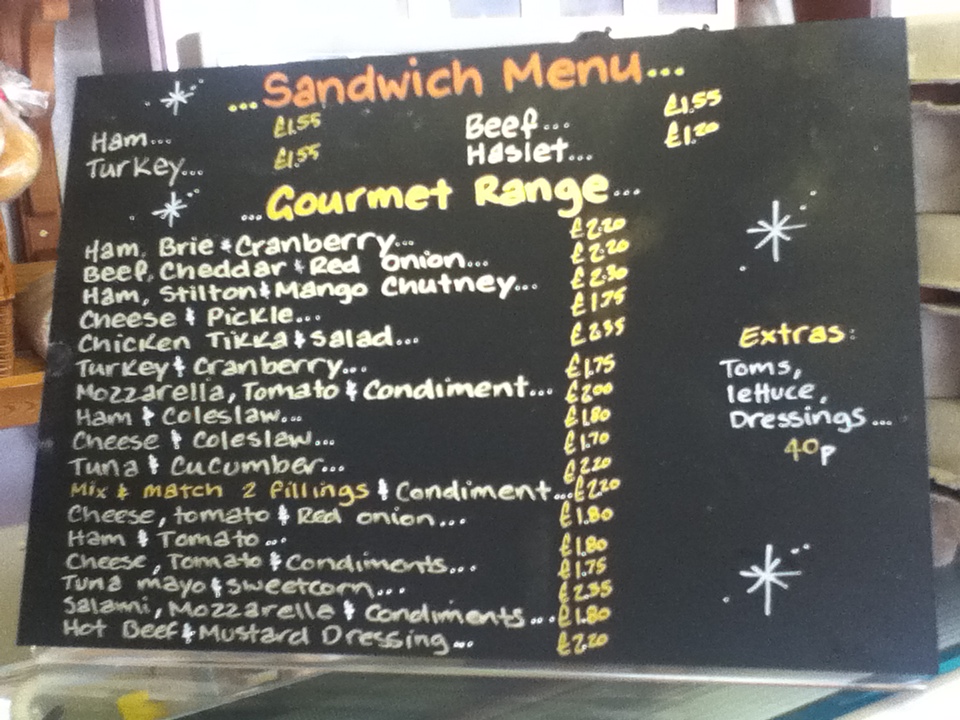 ...Sandwich Menu...
Ham... £1.55 Beef... £1.55
Turkey... £1.55 Haslet... £1.20
...Gourmet Range...
Ham, Brie & Cranberry... £2.20
Beef, Cheddar & Red Onion... £2.20
Ham, Stilton & Mango Chutney... £2.30
Cheese & Pickle... £1.75
Chicken Tikka & Salad... £2.35
Turkey & Cranberry... £1.75
Mozzarella, Tomato & Condiment... £2.00
Ham & Coleslaw... £1.80
Cheese & Coleslaw... £1.70
Tuna & Cucumber... £2.20
Mix & match 2 fillings & Condiment... £2.20
Cheese, tomato & Red onion... £1.80
Ham & Tomato... £1.80
Cheese, Tomato & Condiments... £1.75
Tuna mayo & Sweetcorn... £2.35
Salami, Mozzarella & Condiments... £1.80
Hot Beef & Mustard Dressing... £2.20
Extras:
Toms,
lettuce,
Dressings...
40p